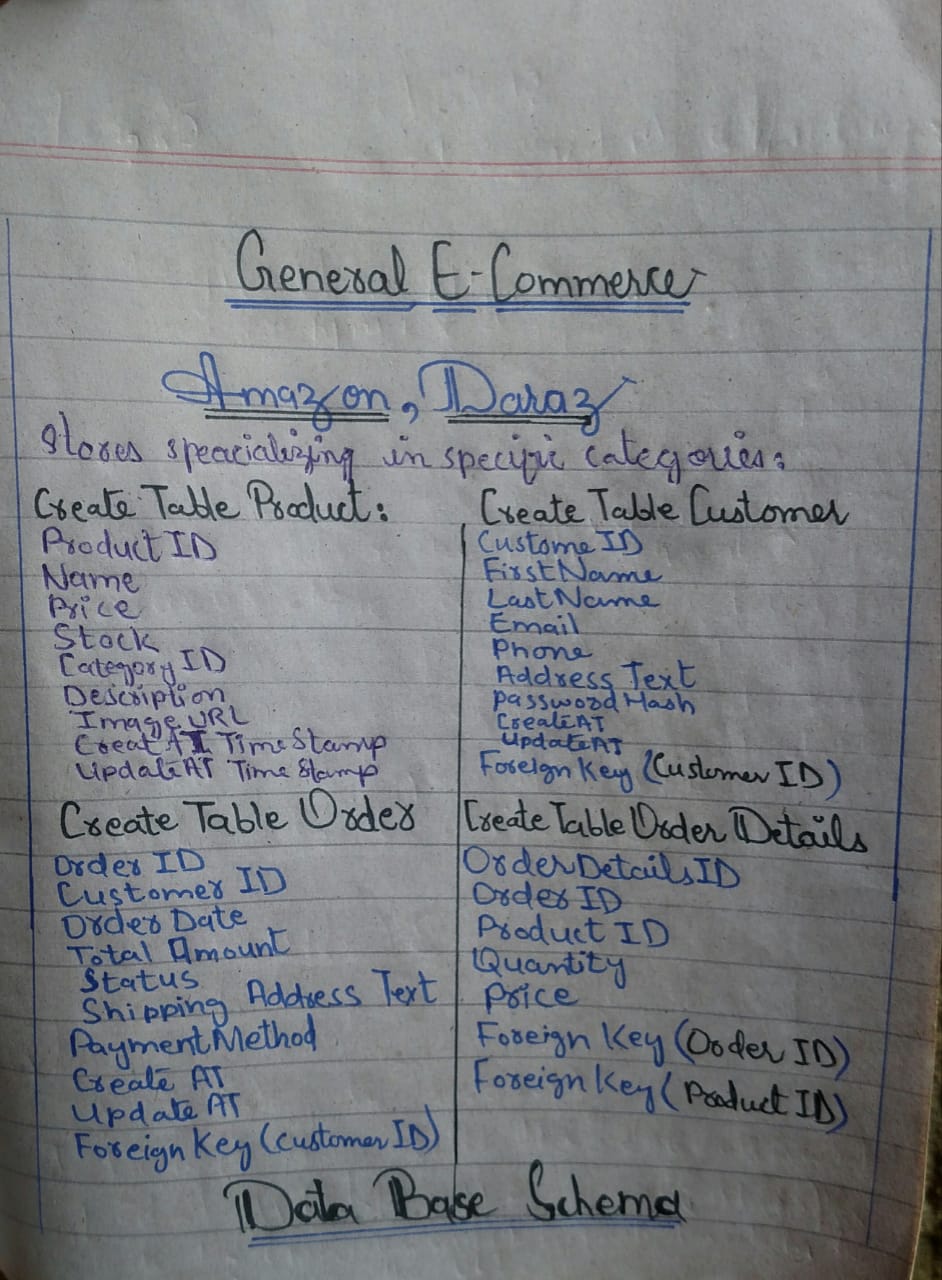 General E-Commerce
Amazon, Daraz
Stores speacializing in specific categories:
Create Table Product:
Product ID
Name
Price
Stock
Category ID
Description
Image URL
Creat AT TimeStamp
UpdateAT Time Stamp
Create Table Customer
Custome ID
FirstName
LastName
Email
Phone
Address Text
Password Hash
CreateAT
UpdateAT
Foreign Key (Customer ID)
Create Table Order
Order ID
Customer ID
Order Date
Total Amount
Status
Shipping Address Text
PaymentMethod
Create AT
Update AT
Foreign Key (Customer ID)
Create Table Order Details
OrderDetailsID
Order ID
Product ID
Quantity
Price
Foreign Key (Order ID)
Foreign Key (Product ID)
Data Base Schema